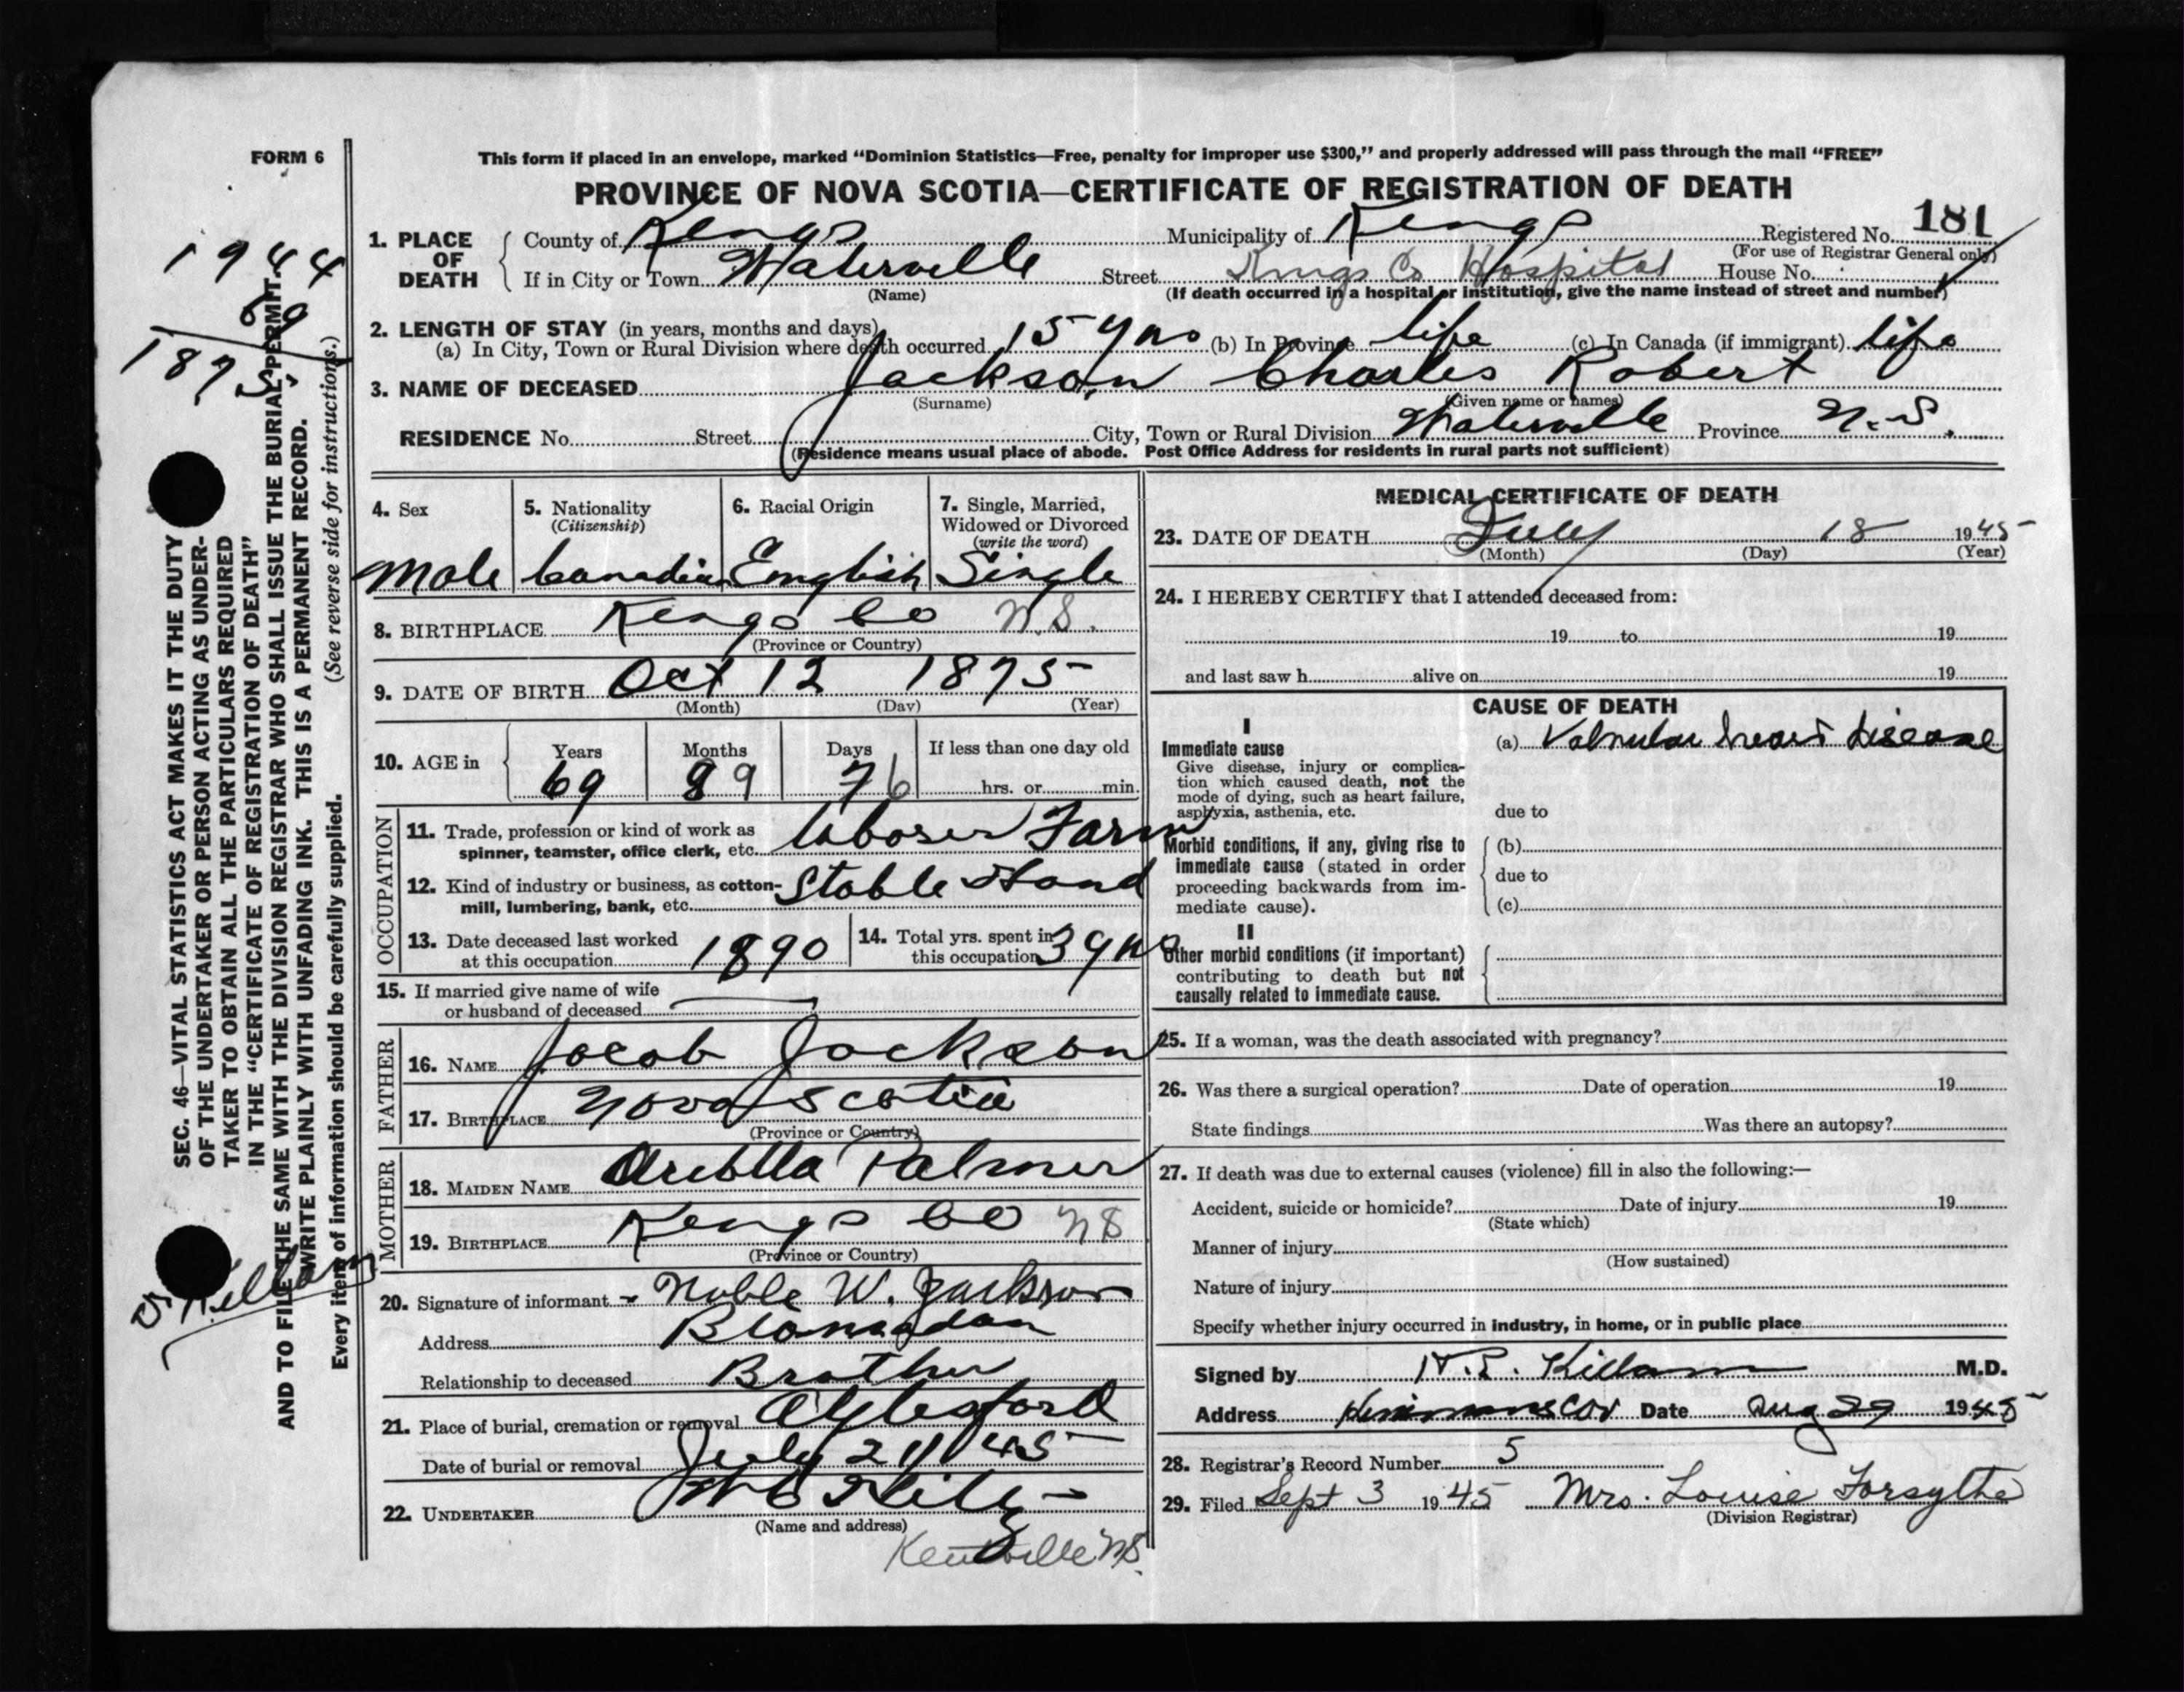 FORM 6
This form if placed in an envelope, marked "Dominion Statistics—Free, penalty for improper use $300," and properly addressed will pass through the mail "FREE"
PROVINCE OF NOVA SCOTIA—CERTIFICATE OF REGISTRATION OF DEATH
181
1. PLACE OF DEATH County of Kings Municipality of Kings Registered No.
(For use of Registrar General only)
If in City or Town Waterville Street Kings Co Hospital House No.
(Name) (If death occurred in a hospital or institution, give the name instead of street and number)
2. LENGTH OF STAY (in years, months and days)
(a) In City, Town or Rural Division where death occurred 15 yrs (b) In Province life (c) In Canada (if immigrant) life
3. NAME OF DECEASED Jackson, Charles Robert
(Surname) (Given name or names)
RESIDENCE No. Street City, Town or Rural Division Waterville Province N.S.
(Residence means usual place of abode. Post Office Address for residents in rural parts not sufficient)
4. Sex 5. Nationality (Citizenship) 6. Racial Origin 7. Single, Married, Widowed or Divorced (write the word)
Male Canadian English Single
8. BIRTHPLACE Kings Co N.S.
(Province or Country)
9. DATE OF BIRTH Oct 12 1875
(Month) (Day) (Year)
10. AGE in Years Months Days If less than one day old
69 8 9 7 6 hrs. or min.
OCCUPATION
11. Trade, profession or kind of work as spinner, teamster, office clerk, etc. Laborer Farm
12. Kind of industry or business, as cotton-mill, lumbering, bank, etc. Stable Hand
13. Date deceased last worked at this occupation 1890
14. Total yrs. spent in this occupation 3 yrs
15. If married give name of wife or husband of deceased
FATHER
16. NAME Jacob Jackson
17. BIRTHPLACE Nova Scotia
(Province or Country)
MOTHER
18. MAIDEN NAME Palmer
19. BIRTHPLACE Kings Co NS
(Province or Country)
20. Signature of informant Noble W. Jackson
Address
Relationship to deceased Brother
21. Place of burial, cremation or removal Aylesford
Date of burial or removal July 21 1945
22. UNDERTAKER
(Name and address)
Kentville NS.
MEDICAL CERTIFICATE OF DEATH
23. DATE OF DEATH July 18 1945
(Month) (Day) (Year)
24. I HEREBY CERTIFY that I attended deceased from:
19 to 19
and last saw h alive on 19
CAUSE OF DEATH
I
Immediate cause
Give disease, injury or complication which caused death, not the mode of dying, such as heart failure, asphyxia, asthenia, etc.
(a) Valvular heart disease
due to
Morbid conditions, if any, giving rise to immediate cause (stated in order proceeding backwards from immediate cause).
(b)
due to
(c)
II
Other morbid conditions (if important) contributing to death but not causally related to immediate cause.
25. If a woman, was the death associated with pregnancy?
26. Was there a surgical operation? Date of operation 19
State findings Was there an autopsy?
27. If death was due to external causes (violence) fill in also the following:—
Accident, suicide or homicide? Date of injury 19
(State which)
Manner of injury
(How sustained)
Nature of injury
Specify whether injury occurred in industry, in home, or in public place
Signed by Killam M.D.
Address Date Aug 29 1945
28. Registrar's Record Number 5
29. Filed Sept 3 1945 Mrs. Louise Forsythe
(Division Registrar)
1944
69
1875
SEC. 46—VITAL STATISTICS ACT MAKES IT THE DUTY
OF THE UNDERTAKER OR PERSON ACTING AS UNDER-
TAKER TO OBTAIN ALL THE PARTICULARS REQUIRED
IN THE "CERTIFICATE OF REGISTRATION OF DEATH"
AND TO FILE THE SAME WITH THE DIVISION REGISTRAR WHO SHALL ISSUE THE BURIAL PERMIT.
WRITE PLAINLY WITH UNFADING INK. THIS IS A PERMANENT RECORD.
Every item of information should be carefully supplied. (See reverse side for instructions.)
Killam